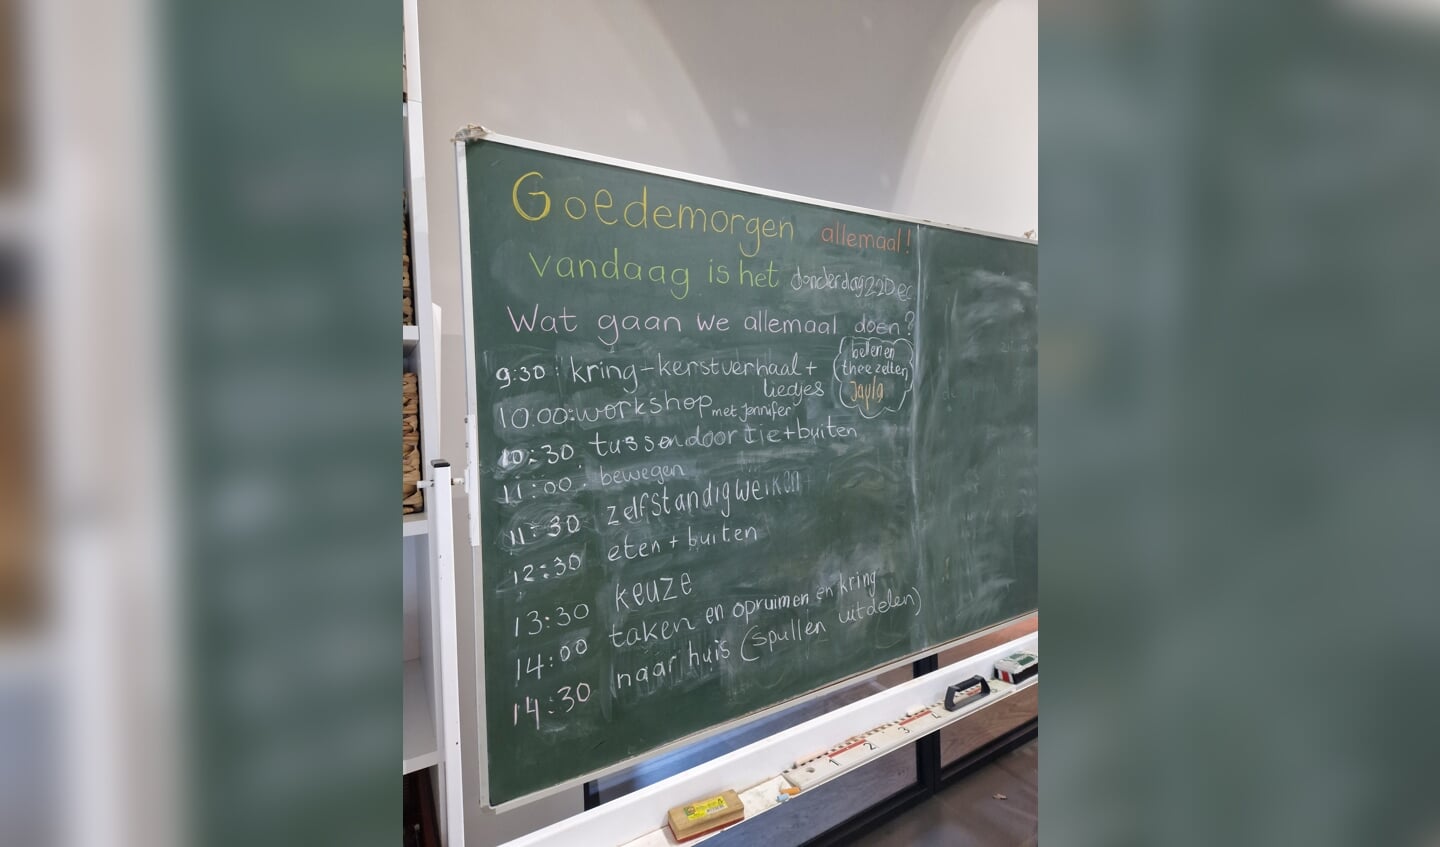 Goedemorgen allemaal!
vandaag is het donderdag 22 Dec
Wat gaan we allemaal doen?
9:30: kring-kerstverhaal+
liedjes
bellen en
thee zetten
Jayla
10.00: workshop met Jennifer
10:30: tussendoortje+buiten
11:00: bewegen
11:30 zelfstandig werken
12:30 eten + buiten
13:30 keuze
14:00 taken en opruimen en kring
14:30 naar huis (spullen uitdelen)
1 2 3 4